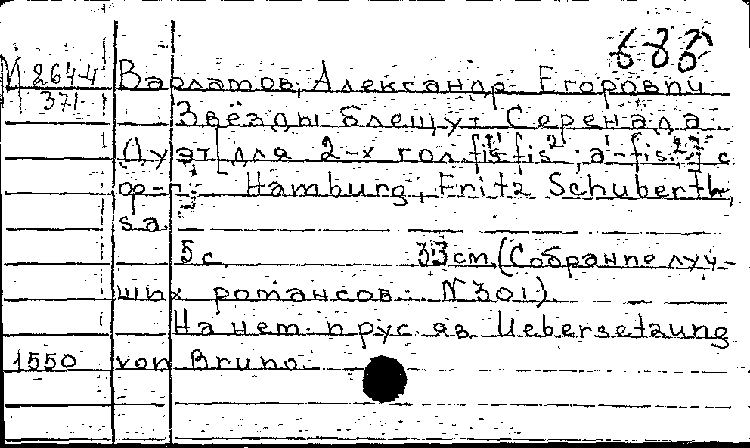 686
М 2644 Варламов, Александр Егорович
371
Звёзды блещут Серенада
[Дуэт] для 2-х гол. fis¹-fis²; a-fis² с
ф-п. Hamburg, Fritz Schuberth,
s.a.
5 с. 33 см. (Собрание луч-
ших романсов. N 301).
На нем. и рус. яз. Uebersetzung
1550 von Bruno.